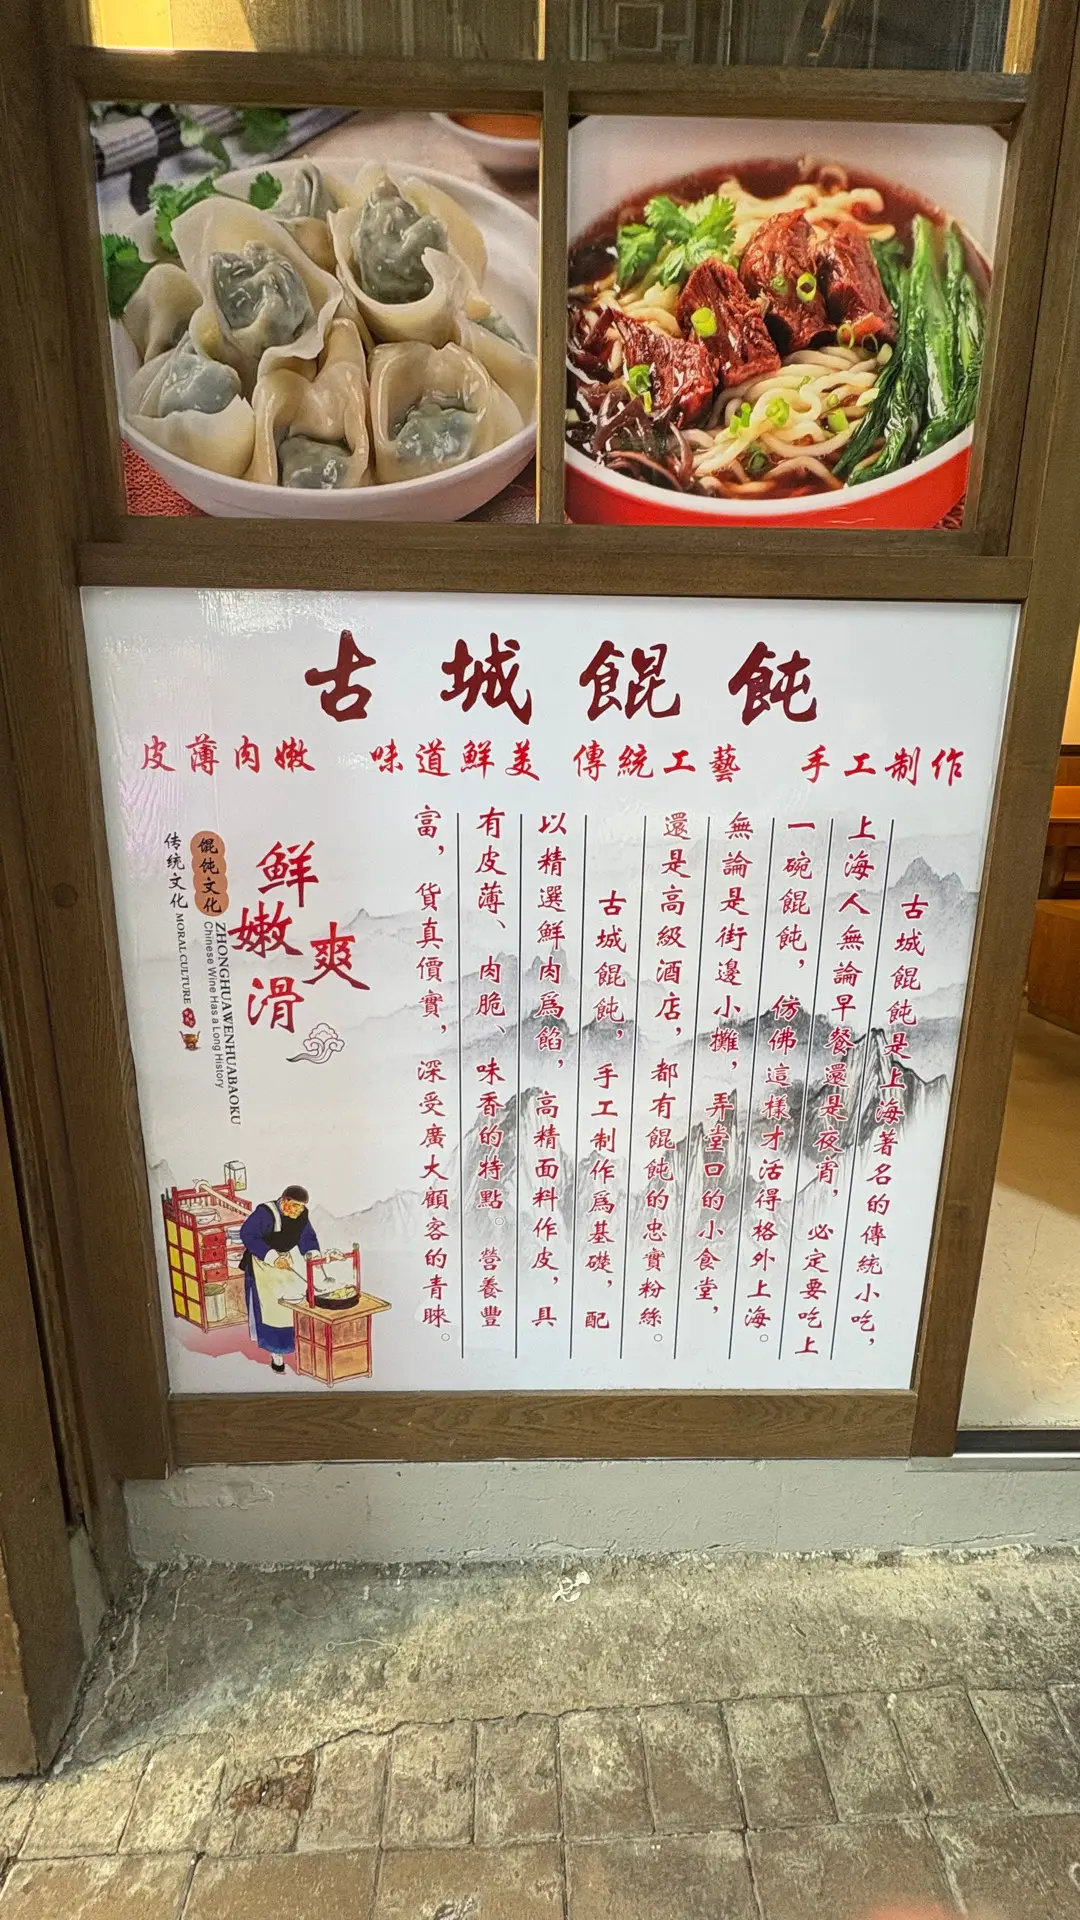 古城餛飩
皮薄肉嫩 味道鮮美 傳統工藝 手工制作
古城餛飩是上海著名的傳統小吃，
上海人無論早餐還是夜宵，必定要吃上
一碗餛飩，仿佛這樣才活得格外上海。
無論是街邊小攤，弄堂口的小食堂，
還是高級酒店，都有餛飩的忠實粉絲。
古城餛飩，手工制作爲基礎，配
以精選鮮肉爲餡，高精面料作皮，具
有皮薄、肉脆、味香的特點。營養豐
富，貨真價實，深受廣大顧客的青睞。
鲜
嫩
爽
滑
馄饨文化
ZHONGHUAWENHUABAOKU
Chinese Wine Has a Long History
传统文化
MORAL CULTURE